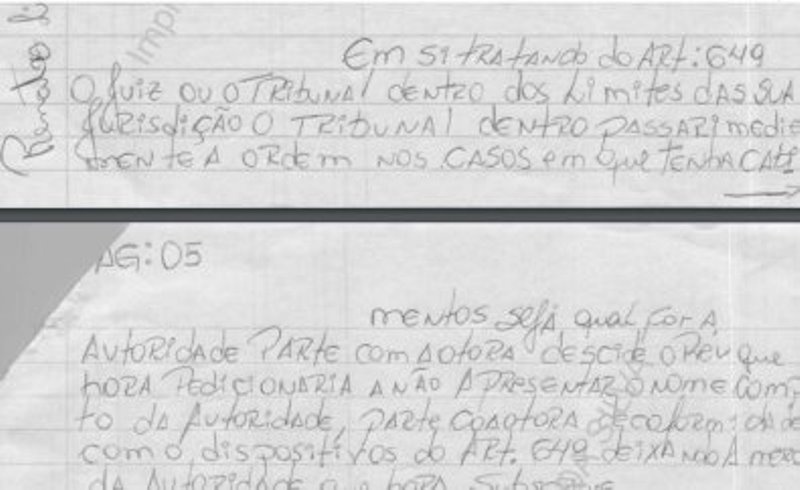 Em si tratando do ART: 649
O Juiz ou o Tribunal dentro dos Limites das sua
Jurisdição o Tribunal dentro passar imedi
mente a ordem nos casos em que tenha
AG: 05
mentos sejá qual for a
Autoridade Parte com aotora descide o Reu que
hora Pedicionaria a não apresentar o nome com
to da Autoridade, parte coaotora
com o dispositivos do ART. 649 deixando a
da Autoridade que hora
Impr